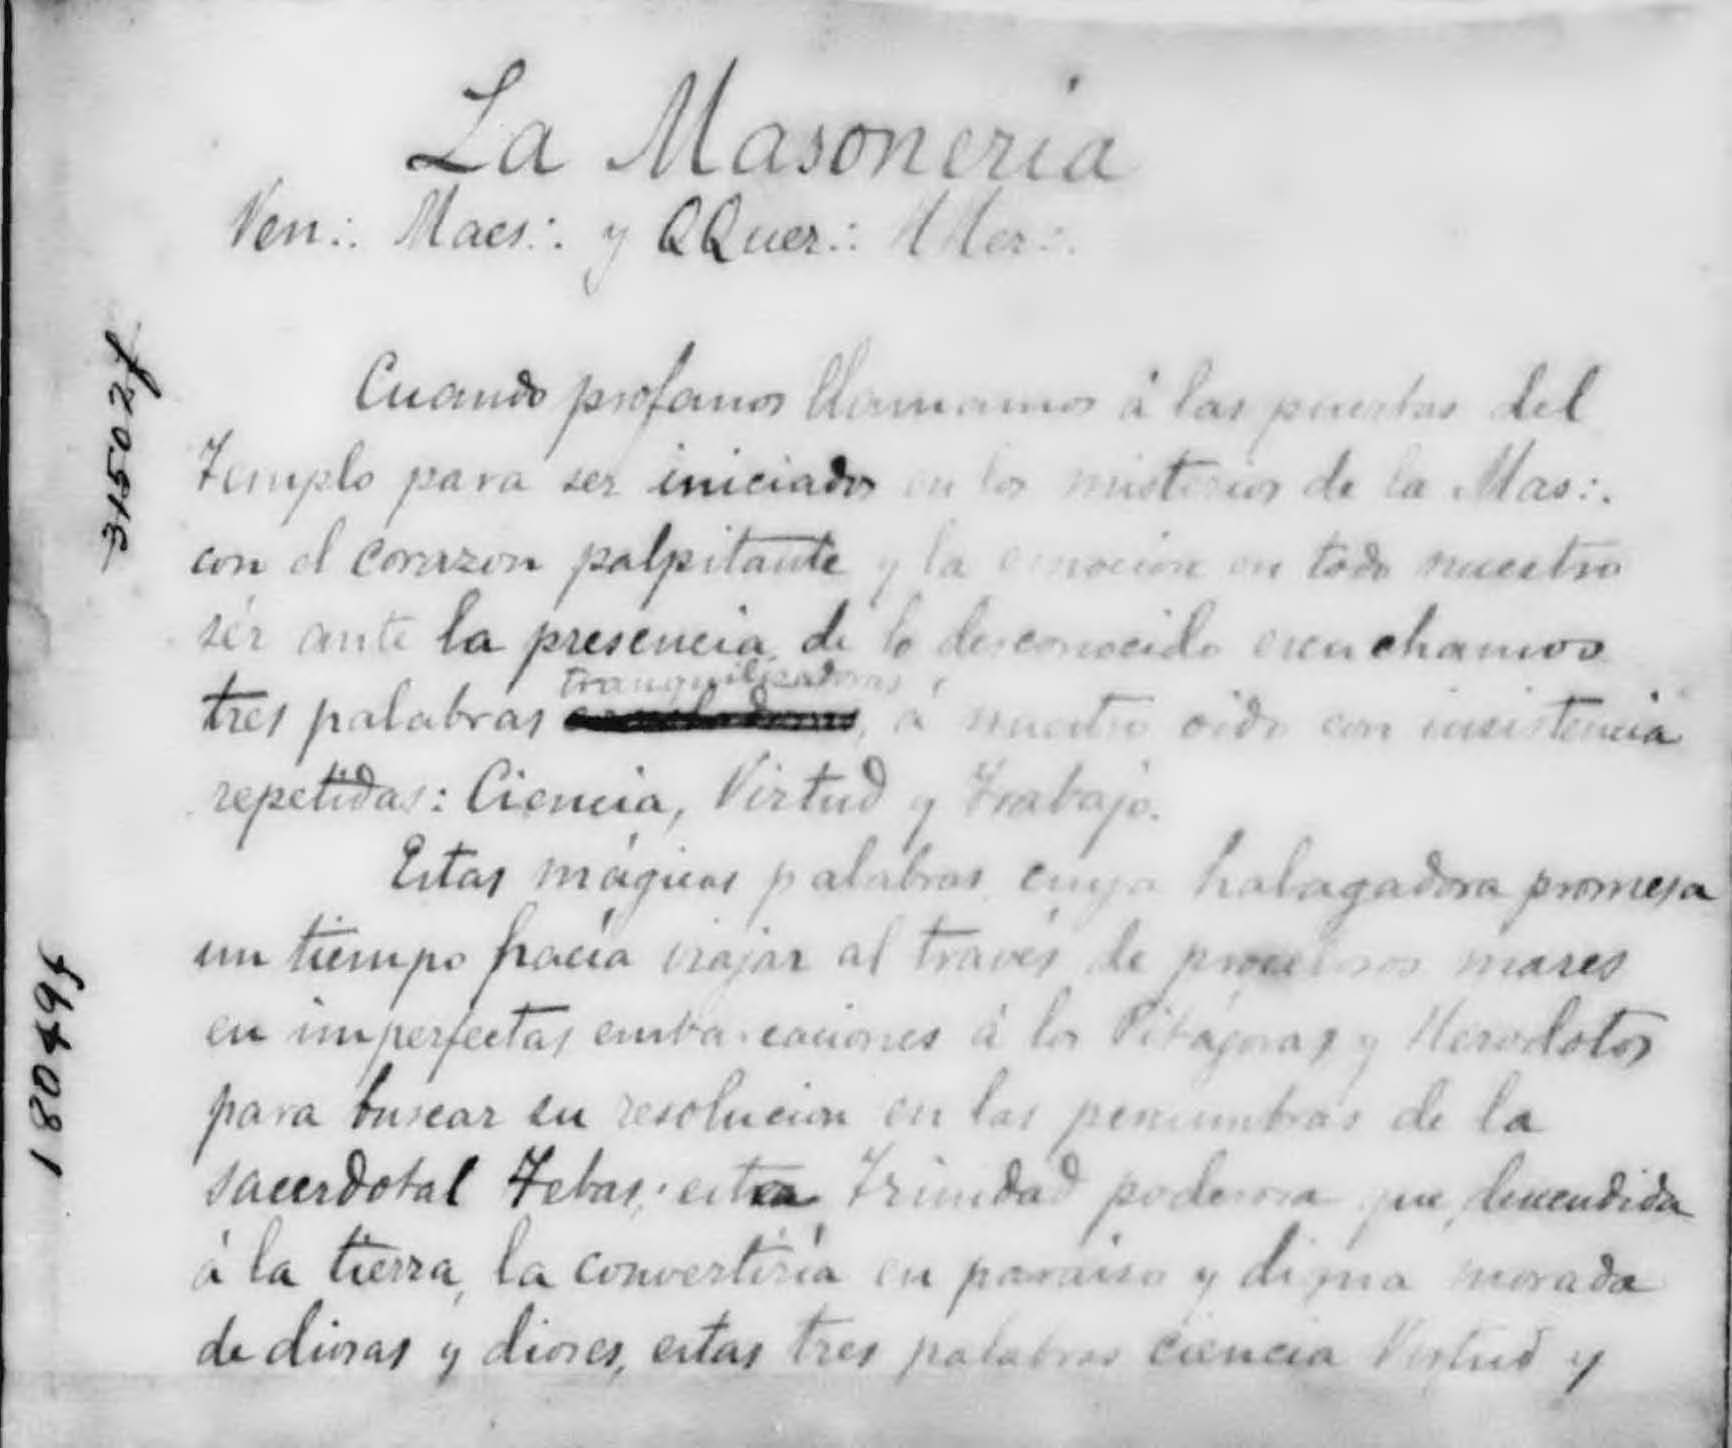 La Masoneria
Ven∴ Maes∴ y QQuer∴ HHer∴
Cuando profanos llamamos á las puertas del
Templo para ser iniciados en los misterios de la Mas∴
con el corazon palpitante y la emocion en todo nuestro
sér ante la presencia de lo desconocido escuchamos
tranquilizadoras
tres palabras á nuestro oido con insistencia
repetidas: Ciencia, Virtud y Trabajo.
Estas mágicas palabras cuya halagadora promesa
un tiempo hacía viajar al través de procelosos mares
en imperfectas embarcaciones á los Pitágoras y Herodotos
para buscar su resolucion en las penumbras de la
sacerdotal Tebas; esta Trinidad poderosa que, descendida
á la tierra, la convertiría en paraiso y digna morada
de diosas y dioses, estas tres palabras ciencia Virtud y
31502f
18049f